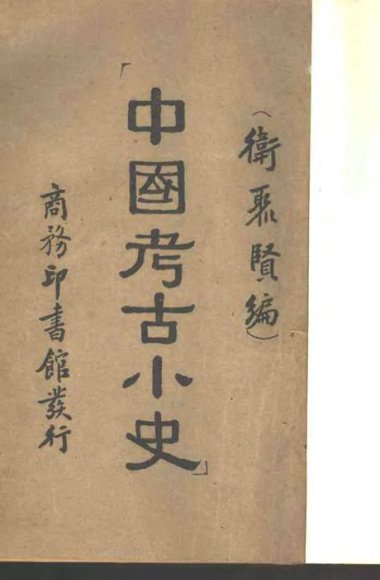 （衛聚賢編）
「中國考古小史」
商務印書館發行